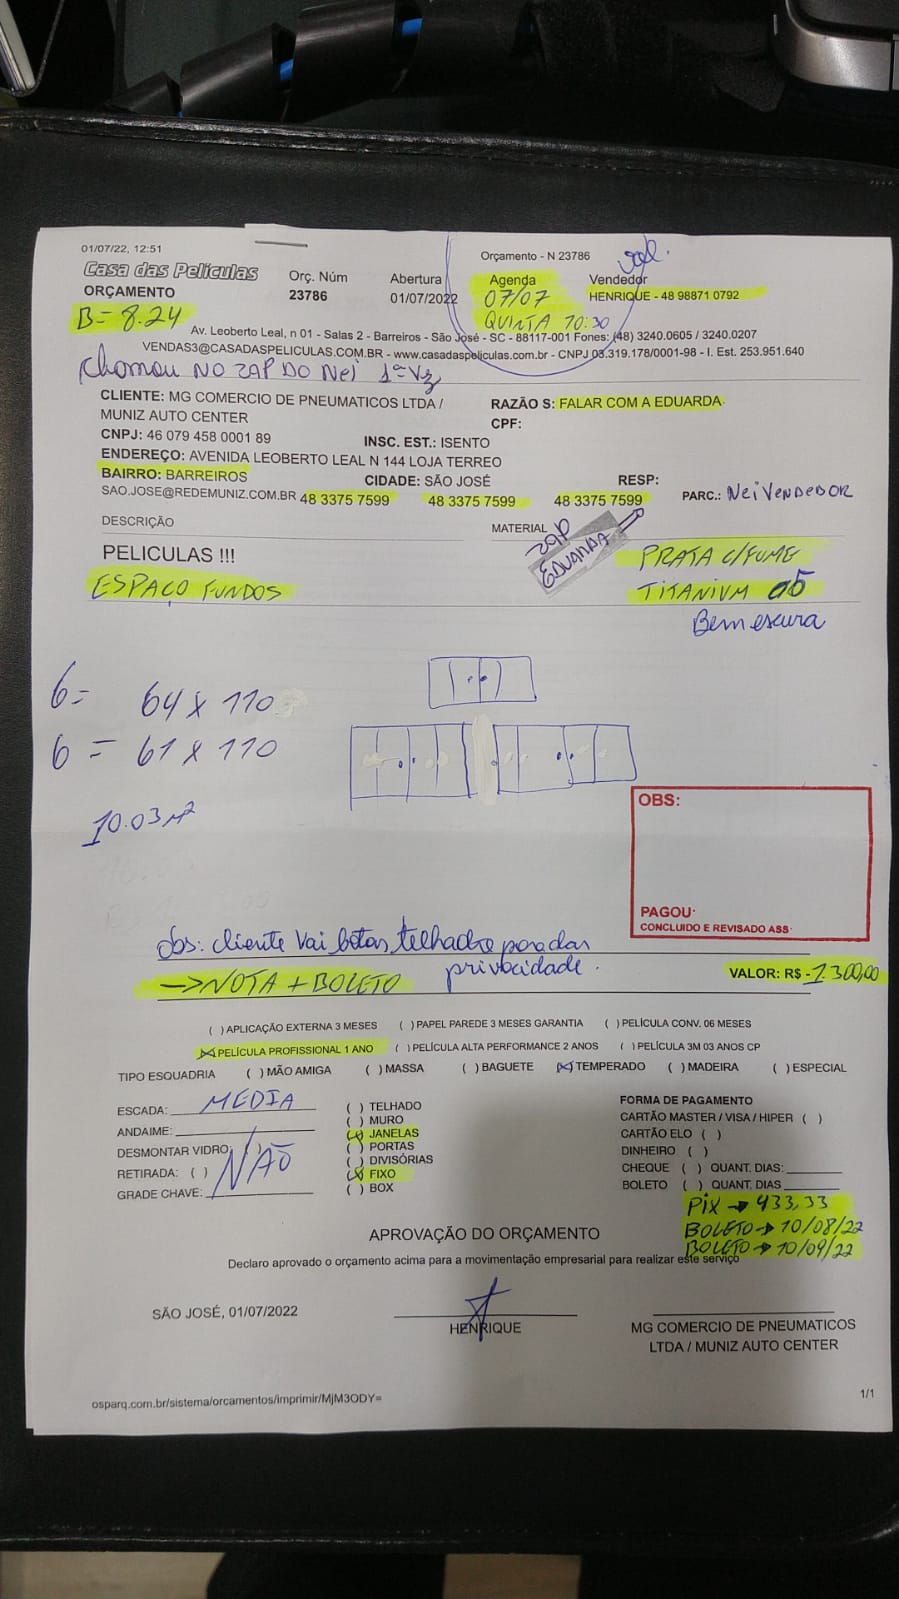 01/07/22, 12:51
Orçamento - N 23786
Casa das Películas
ORÇAMENTO
Orç. Núm
23786
Abertura
01/07/2022
Agenda
07/07
QUINTA 10:30
Vendedor
HENRIQUE - 48 98871 0792
B= 8.24
Av. Leoberto Leal, n 01 - Salas 2 - Barreiros - São José - SC - 88117-001 Fones: (48) 3240.0605 / 3240.0207
VENDAS3@CASADASPELICULAS.COM.BR - www.casadaspeliculas.com.br - CNPJ 03.319.178/0001-98 - I. Est. 253.951.640
Chamou NO ZAP DO Nei 1ª Vz
CLIENTE: MG COMERCIO DE PNEUMATICOS LTDA /
MUNIZ AUTO CENTER
RAZÃO S: FALAR COM A EDUARDA
CPF:
CNPJ: 46 079 458 0001 89
INSC. EST.: ISENTO
ENDEREÇO: AVENIDA LEOBERTO LEAL N 144 LOJA TERREO
BAIRRO: BARREIROS
CIDADE: SÃO JOSÉ
RESP:
SAO.JOSE@REDEMUNIZ.COM.BR 48 3375 7599 48 3375 7599 48 3375 7599
PARC.: Nei VENDEDOR
DESCRIÇÃO
MATERIAL
ZAP
EDUARDA
PELICULAS !!!
PRATA C/FUME
ESPAÇO FUNDOS
TITANIUM 05
Bem escura
6= 64 x 110
6 = 61 x 110
10.03 M²
OBS:
PAGOU:
CONCLUIDO E REVISADO ASS:
obs: cliente vai botar telhado para dar
privacidade.
->NOTA + BOLETO
VALOR: R$ - 1.300,00
( ) APLICAÇÃO EXTERNA 3 MESES ( ) PAPEL PAREDE 3 MESES GARANTIA ( ) PELÍCULA CONV. 06 MESES
(X) PELÍCULA PROFISSIONAL 1 ANO ( ) PELÍCULA ALTA PERFORMANCE 2 ANOS ( ) PELÍCULA 3M 03 ANOS CP
TIPO ESQUADRIA ( ) MÃO AMIGA ( ) MASSA ( ) BAGUETE (X) TEMPERADO ( ) MADEIRA ( ) ESPECIAL
ESCADA: MEDIA
ANDAIME:
DESMONTAR VIDRO:
RETIRADA: ( )
GRADE CHAVE:
NÃO
( ) TELHADO
( ) MURO
(X) JANELAS
( ) PORTAS
( ) DIVISÓRIAS
(X) FIXO
( ) BOX
FORMA DE PAGAMENTO
CARTÃO MASTER / VISA / HIPER ( )
CARTÃO ELO ( )
DINHEIRO ( )
CHEQUE ( ) QUANT. DIAS:
BOLETO ( ) QUANT. DIAS
PIX -> 433,33
BOLETO -> 10/08/22
BOLETO -> 10/09/22
APROVAÇÃO DO ORÇAMENTO
Declaro aprovado o orçamento acima para a movimentação empresarial para realizar este serviço
SÃO JOSÉ, 01/07/2022
HENRIQUE
MG COMERCIO DE PNEUMATICOS
LTDA / MUNIZ AUTO CENTER
osparq.com.br/sistema/orcamentos/imprimir/MjM3ODY=
1/1